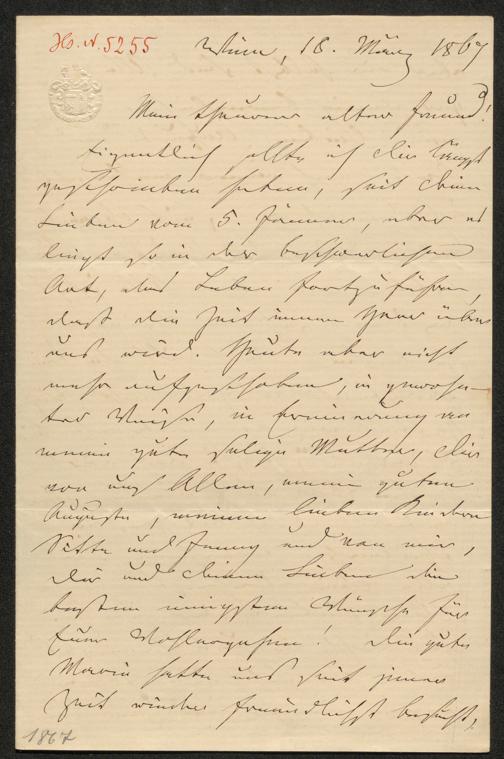 Hs. N. 5255
Wien, 18. März 1867
Mein theurer alter Freund!
Eigentlich sollte ich dir längst
geschrieben haben, seit deinem
Lieben vom 5. Jänner, aber es
liegt so in der beschwerlichen
Art, das Leben fortzuführen,
daß die Zeit immer Herr über
uns wird. Heute aber nicht
mehr aufgeschoben, in gewohn-
ter Weise, in Erinnerung an
meine gute selige Mutter, dir
von uns Allen, meiner guten
Auguste, meinen lieben Kindern
und Fanny und von mir,
dir und deinen Lieben die
besten innigsten Wünsche für
Euer Wohlergehen! Die gute
Marie hatte uns seit jener
Zeit wieder freundlichst besucht,
1867